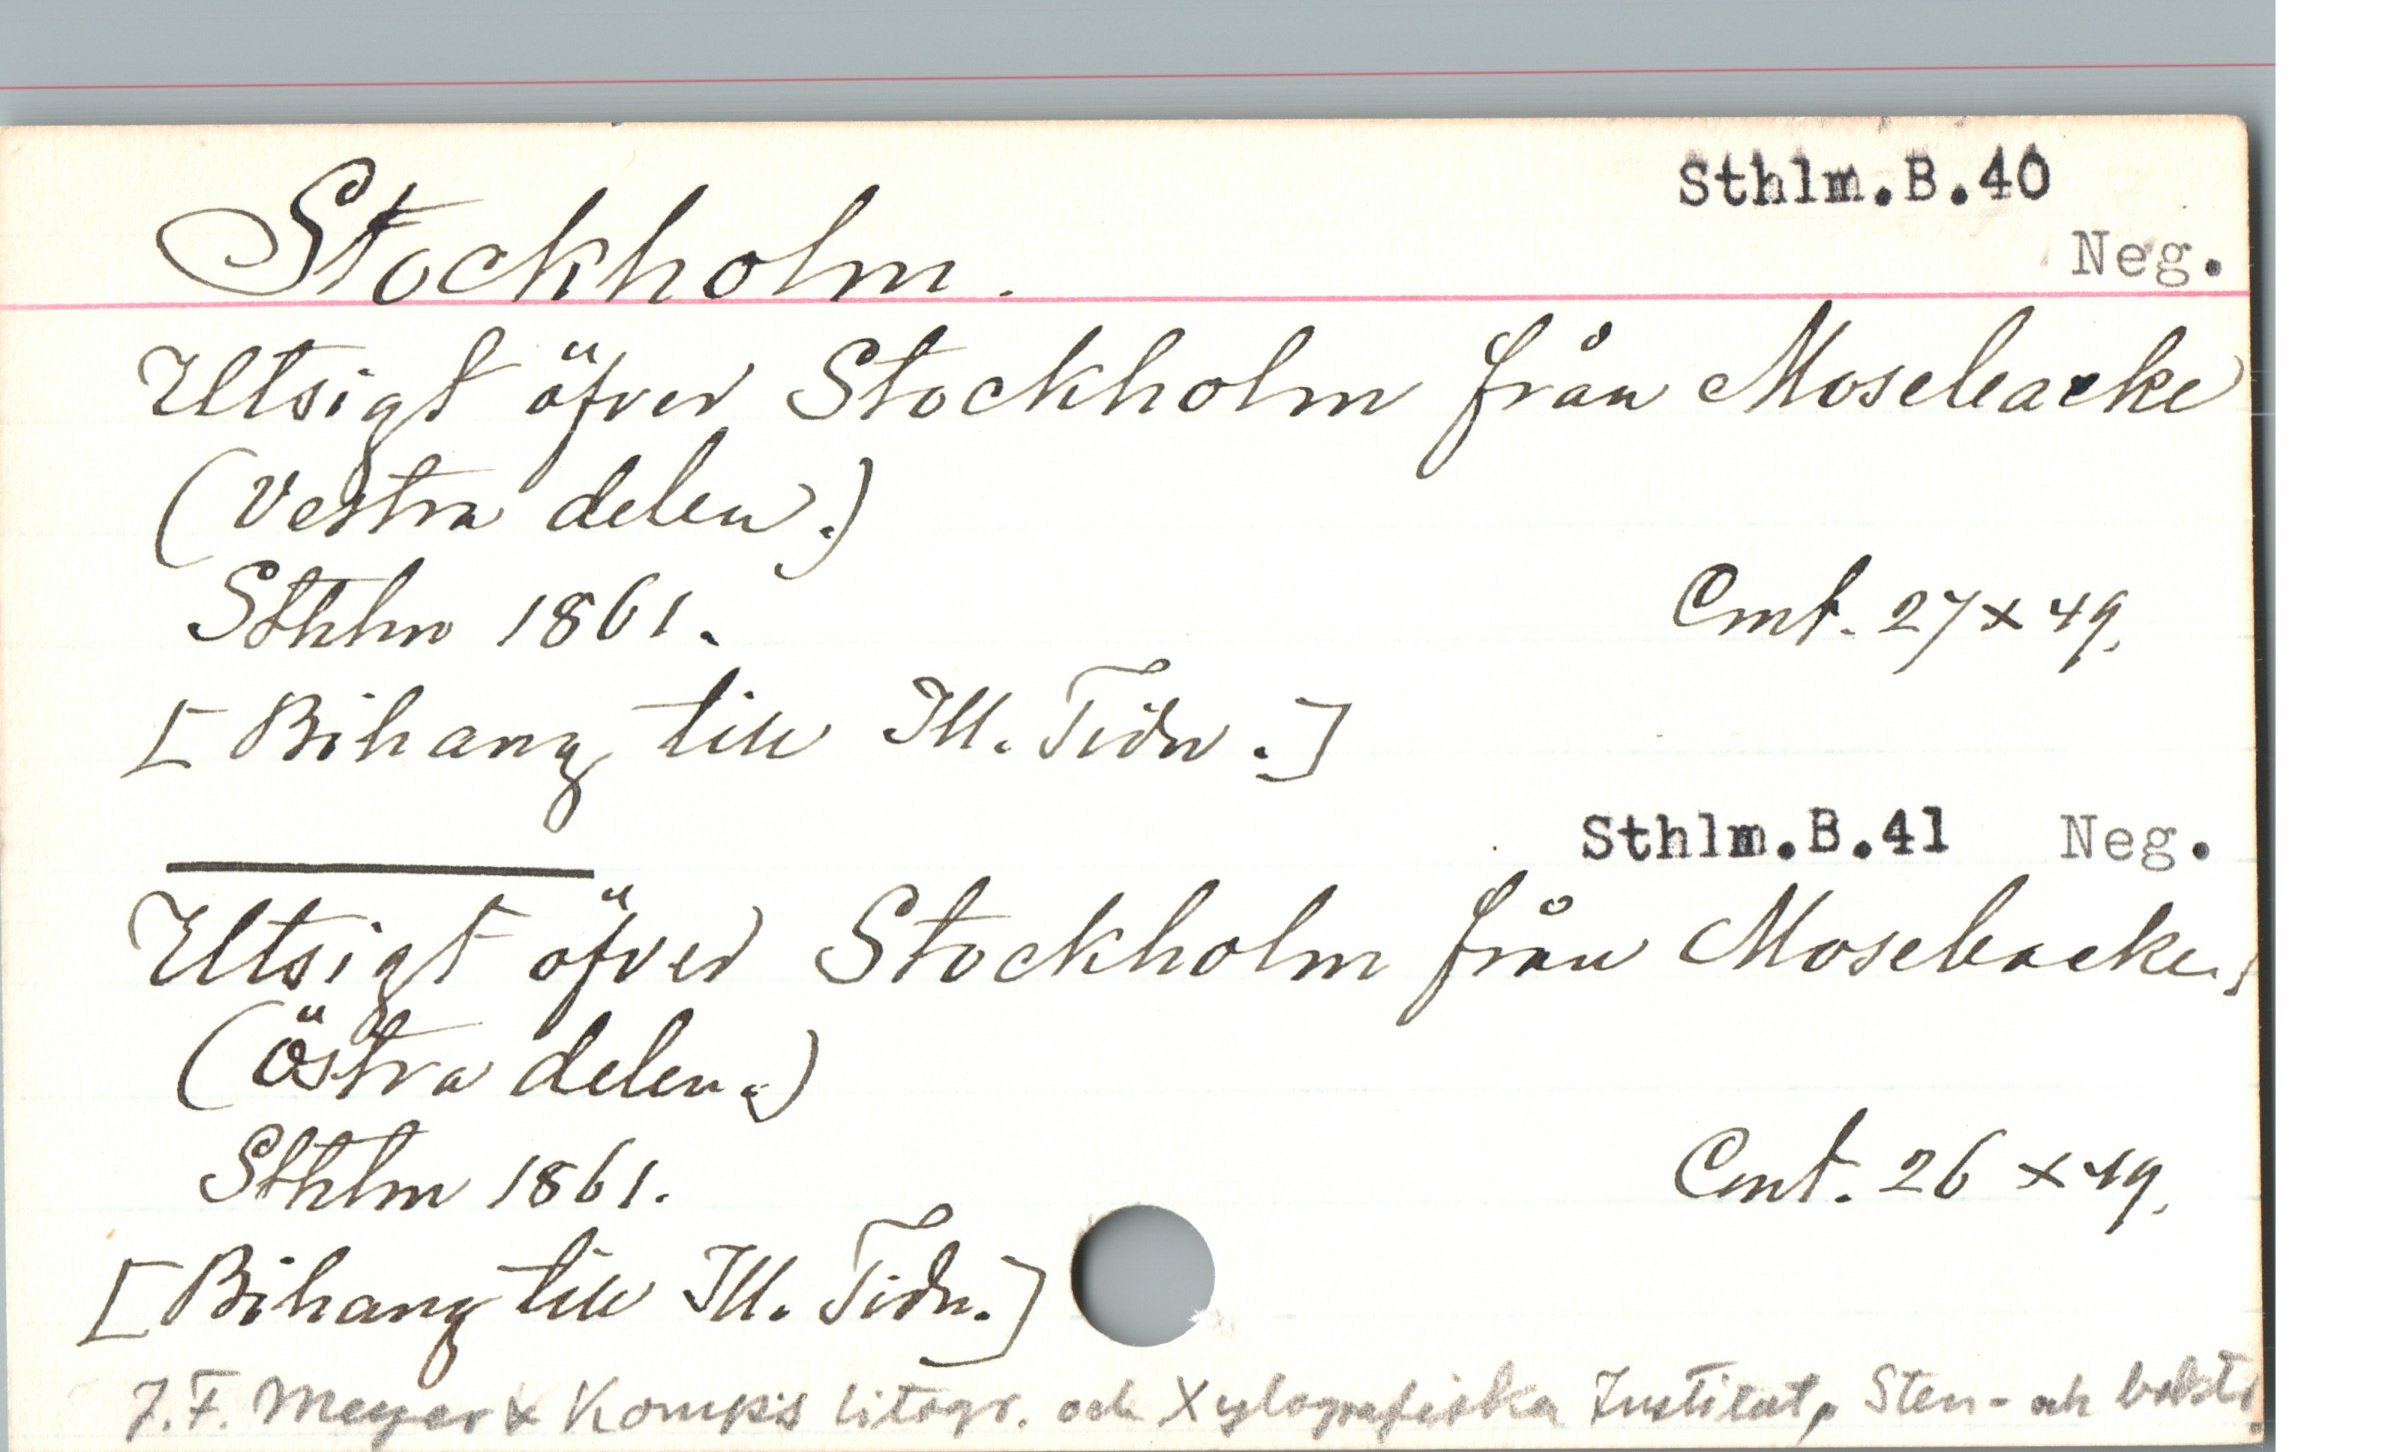 Sthlm.B.40
Stockholm.
Neg.
Utsigt öfver Stockholm från Mosebacke
(Vestra delen.)
Sthlm 1861.
Cmt. 27 x 49.
[Bihang till Ill. Tidn.]
Sthlm.B.41 Neg.
Utsigt öfver Stockholm från Mosebacke.
(Östra delen.)
Sthlm 1861.
Cmt. 26 x 49.
[Bihang till Ill. Tidn.]
J. F. Meyer & Komp:s Litogr. och Xylografiska Institut, Sten- och boktr.